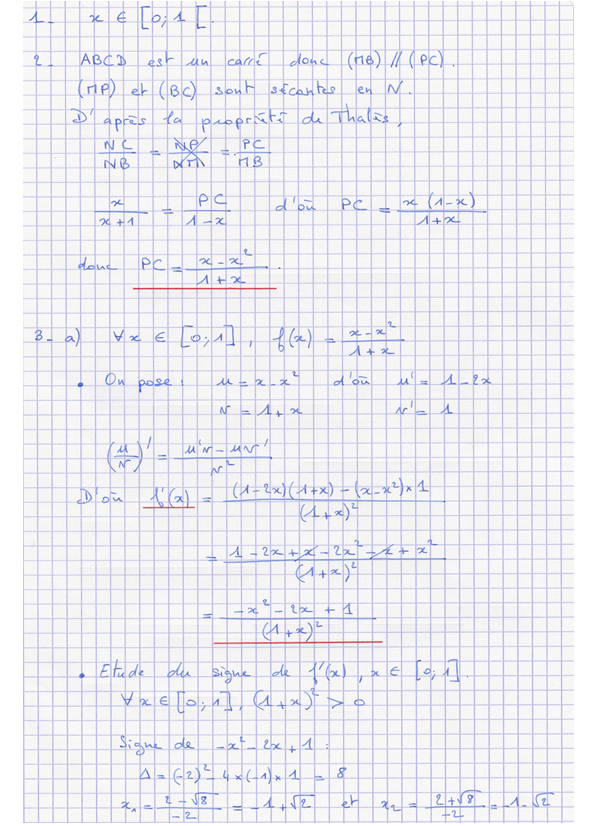 1- x ∈ [0;1[.
2- ABCD est un carré donc (MB) // (PC).
(MP) et (BC) sont sécantes en N.
D'après la propriété de Thalès,
NC/NB = NP/NM = PC/MB
x/(x+1) = PC/(1-x) d'où PC = x(1-x)/(1+x)
donc PC = (x-x²)/(1+x).
3- a) ∀x ∈ [0;1], f(x) = (x-x²)/(1+x)
• On pose : u = x-x² d'où u' = 1-2x
v = 1+x v' = 1
(u/v)' = (u'v - uv')/v²
D'où f'(x) = ((1-2x)(1+x) - (x-x²)×1)/(1+x)²
= (1-2x+x-2x²-x+x²)/(1+x)²
= (-x²-2x+1)/(1+x)²
• Etude du signe de f'(x), x ∈ [0;1].
∀x ∈ [0;1], (1+x)² > 0
Signe de -x²-2x+1 :
Δ = (-2)²-4×(-1)×1 = 8
x₁ = (2-√8)/-2 = -1+√2 et x₂ = (2+√8)/-2 = -1-√2